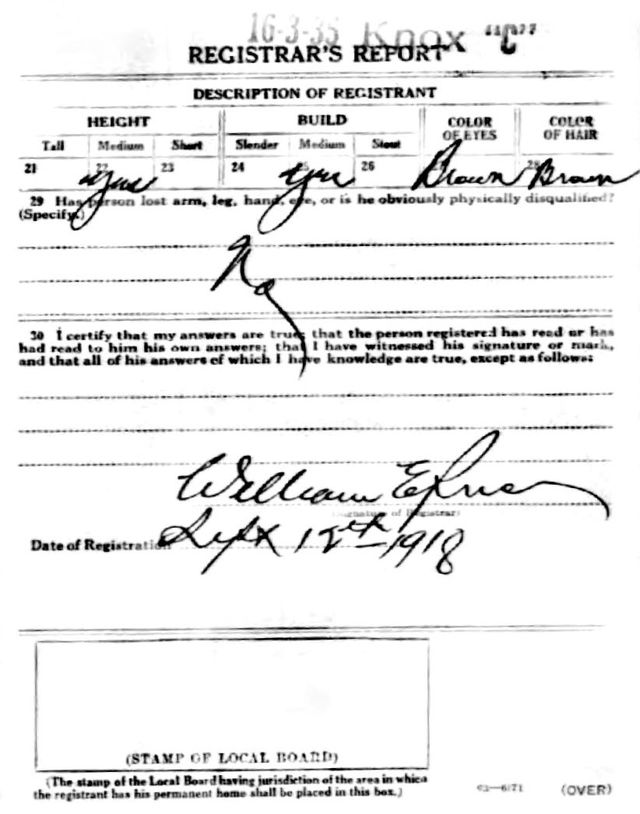 16-3-35 Knox "C"
REGISTRAR'S REPORT
DESCRIPTION OF REGISTRANT
HEIGHT BUILD COLOR OF EYES COLOR OF HAIR
Tall Medium Short Slender Medium Stout
21 22 23 24 26 28
yes yes Brown Brown
29 Has person lost arm, leg, hand, eye, or is he obviously physically disqualified?
(Specify.)
No
30 I certify that my answers are true; that the person registered has read or has
had read to him his own answers; that I have witnessed his signature or mark,
and that all of his answers of which I have knowledge are true, except as follows:
William E
(Signature of Registrar)
Date of Registration Sept 12th 1918
(STAMP OF LOCAL BOARD)
(The stamp of the Local Board having jurisdiction of the area in which
the registrant has his permanent home shall be placed in this box.)
(OVER)